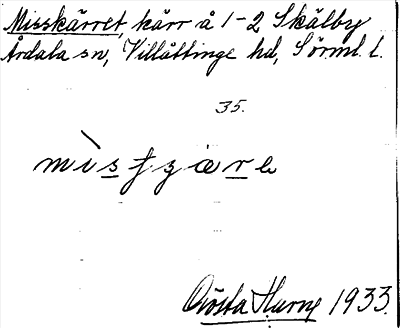 Misskärret, kärr å 1-2 Skälby
Årdala sn, Villåttinge hd, Sörml. l.
35.
Gösta Hurne 1933.